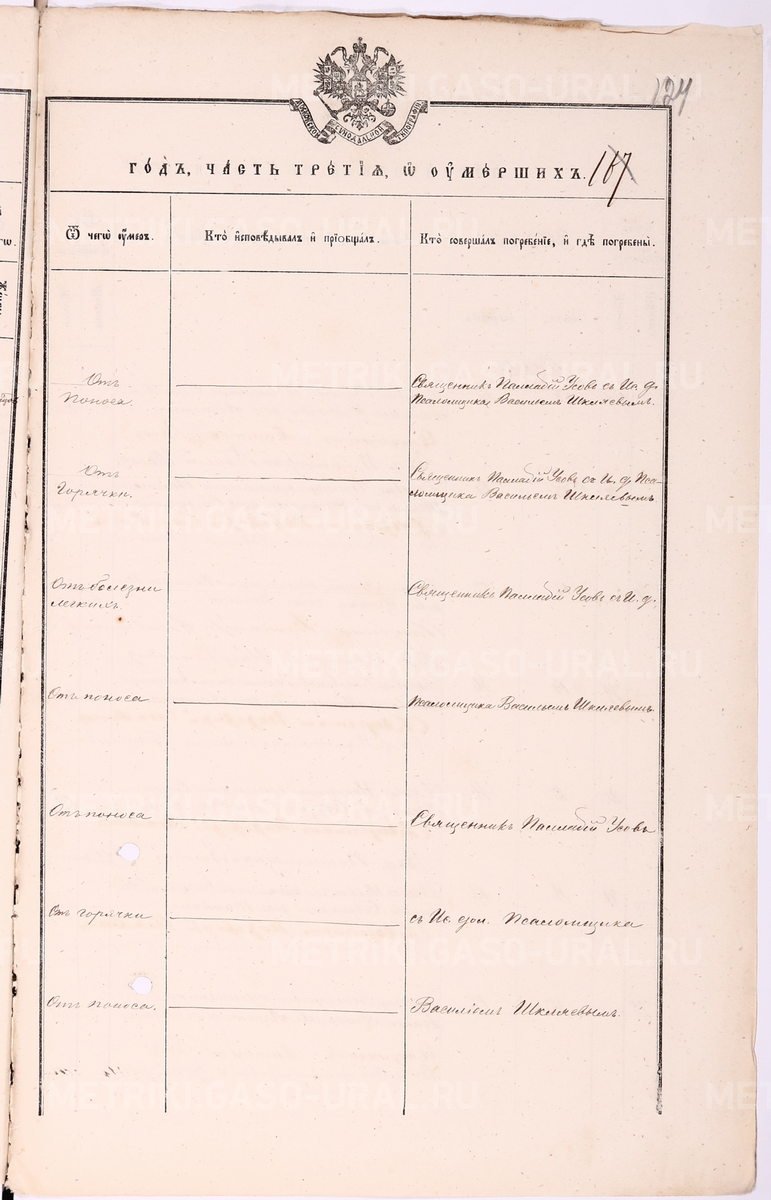 124
МОСКОВСКОЙ СѴНОДАЛЬНОЙ ТИПОГРАФІИ
ГОДЪ, ЧАСТЬ ТРЕТІЯ, Ѡ ОУМЕРШИХЪ. 167
Ѿ чегѡ оумеръ.
Кто исповѣдывалъ и пріобщалъ.
Кто совершалъ погребеніе, и гдѣ погребены.
Отъ
поноса.
Священникъ Палладій Усовъ съ Ис. д.
Псаломщика Василіемъ Шкляевымъ.
Отъ
Горячки.
Священникъ Палладій Усовъ съ И. д. Пса-
ломщика Василіемъ Шкляевымъ
Отъ болезни
легкихъ.
Священникъ Палладій Усовъ съ И. д.
Отъ поноса
Псаломщика Василіемъ Шкляевымъ.
Отъ поноса
Священникъ Палладій Усовъ
Отъ горячки
съ Ис. дол. Псаломщика
Отъ поноса.
Василіемъ Шкляевымъ.
METRIKI.GASO-URAL.RU